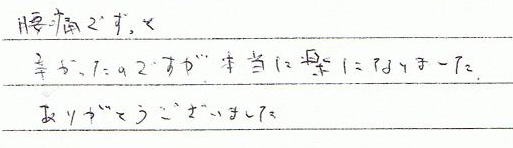 腰痛です。と
辛かったのですが本当に楽になりました。
ありがとうございました